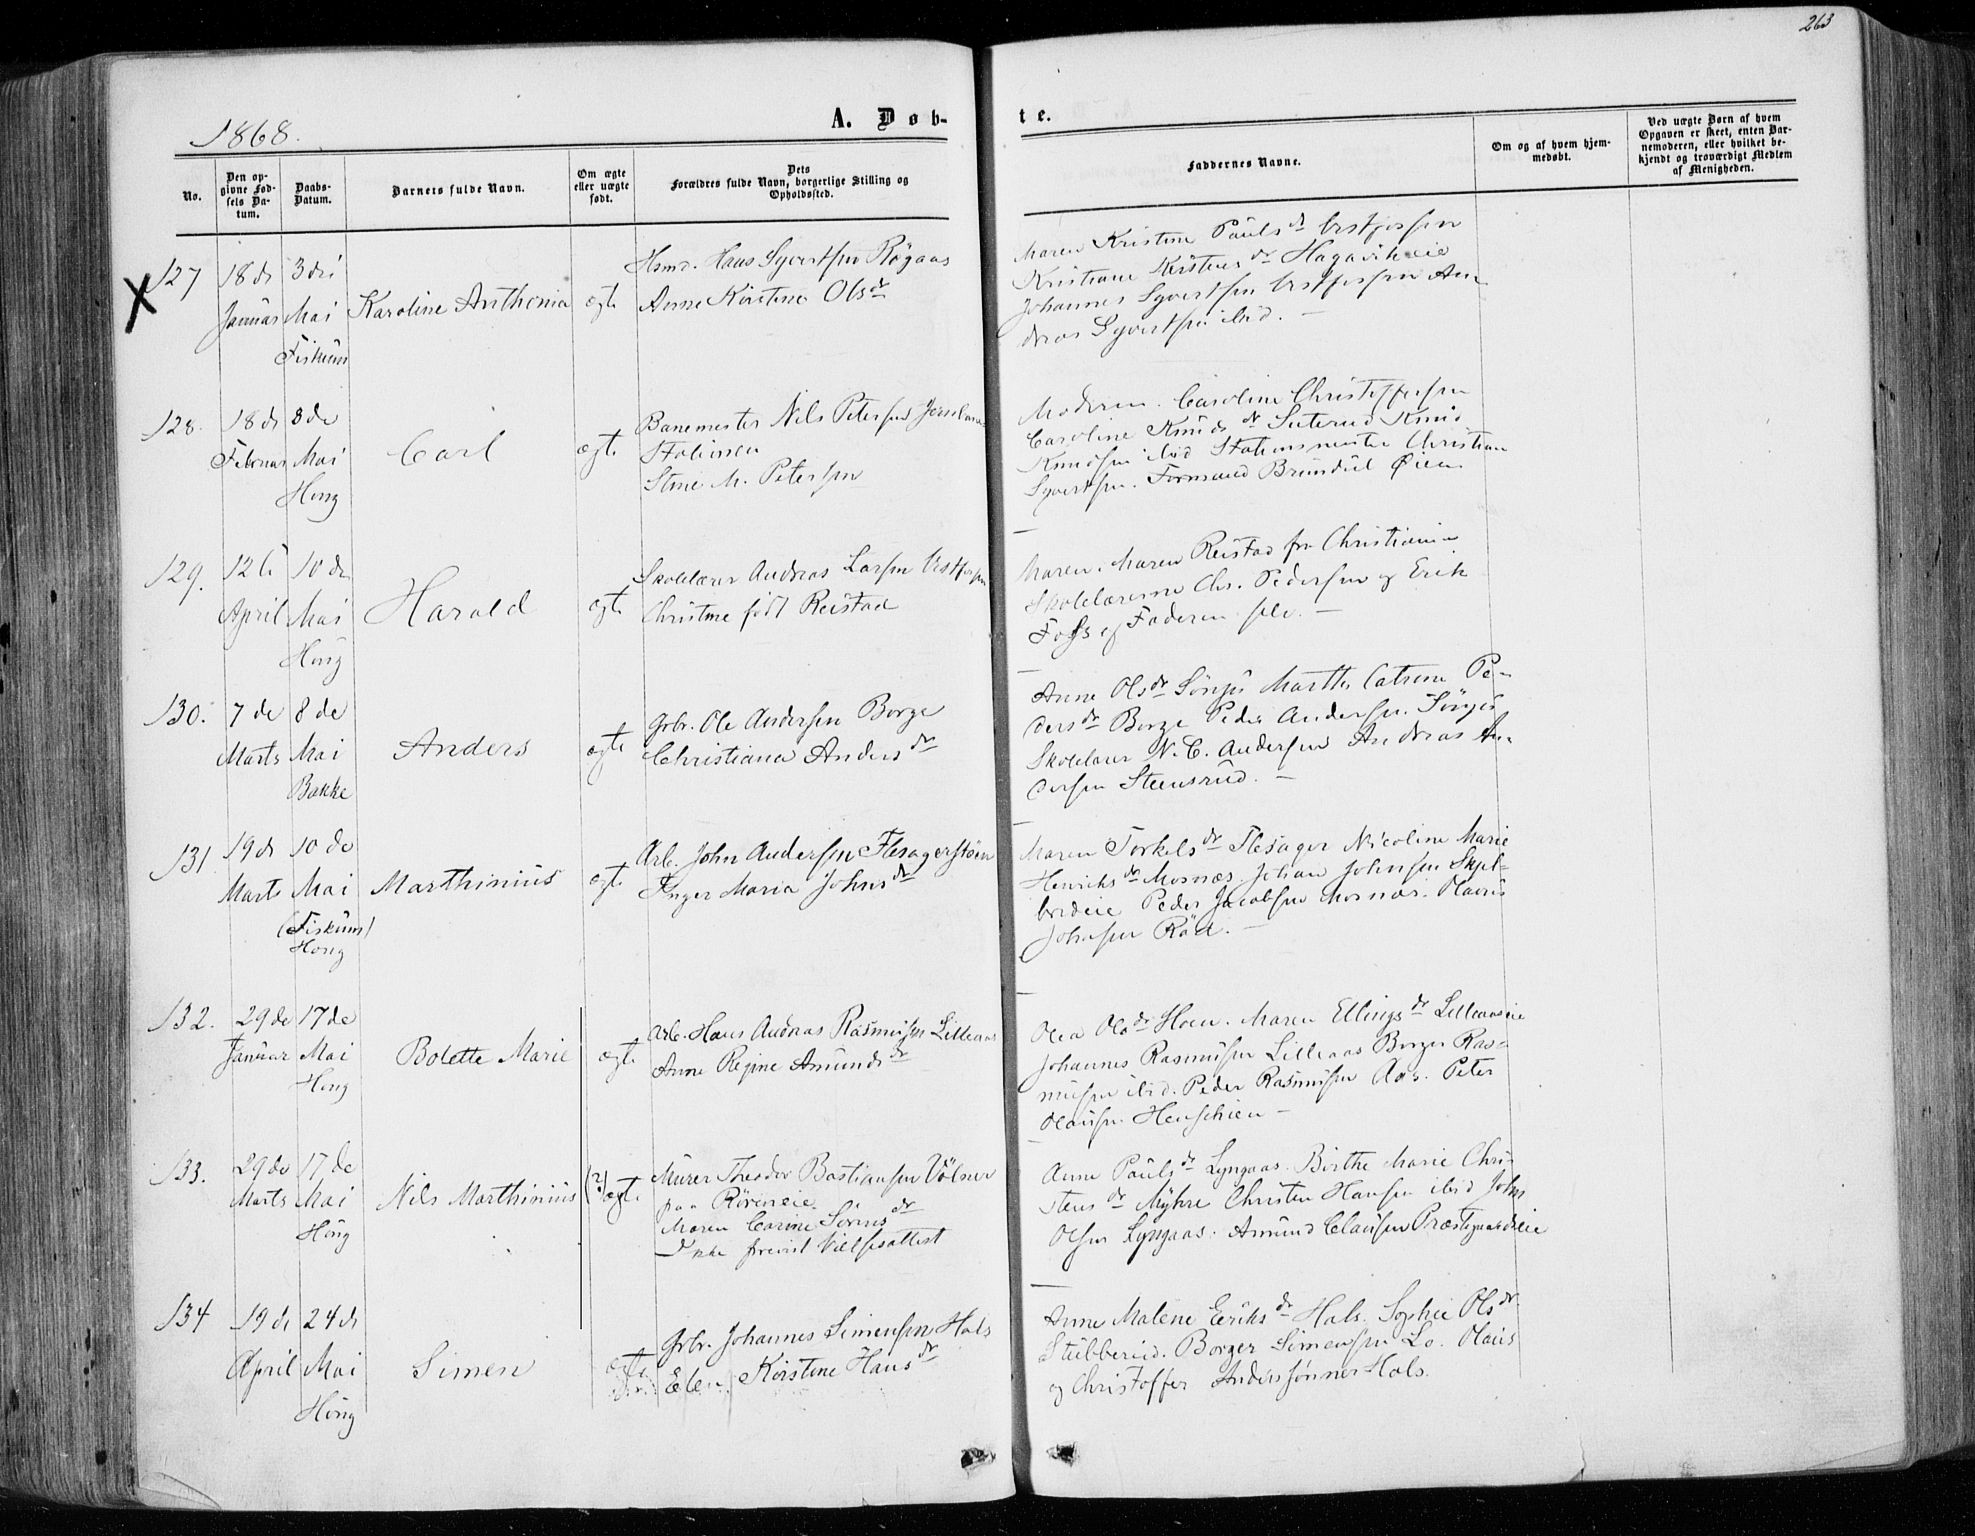 263
1868.
A. Døb-
te.
No.
Den op-
givne Fød-
sels Da-
tum.
Daabs-
Datum.
Barnets fulde Navn.
Om ægte
eller uægte
født.
Dets
Forældres fulde Navn, borgerlige Stilling og
Opholdssted.
Faddernes Navne.
Om og af hvem hjem-
medøbt.
Ved uægte Børn af hvem
Opgaven er skeet, enten Bar-
nemoderen, eller hvilket be-
kjendt og troværdigt Medlem
af Menigheden.
X
127
18de
Januar
3die
Mai
Fiskum
Karoline Anthonia
ægte
Hsmd. Hans Syvertsen Røgaas
Anne Kirstine Olsdr
Maren Kristine Paulsdr Vestfossen
Kristiane Kerstensdr Hagavikeie
Johannes Syvertsen Vestfossen An-
dreas Syvertsen ibid. —
128.
18de
Februar
8de
Mai
Houg
Carl
ægte
Banemester Nils Petersen
Stationen
Stine M. Petersen
Moderen. Caroline Christoffersen
Caroline Knudsdr Knud
Knudsen ibid Stationsmester Christian
Syvertsen. Formand Øien
129.
12te
April
10de
Mai
Houg
Harald
ægte
Skolelærer Andreas Larsen Vestfossen
Christine født Reistad
Maren. Maren Reistad fra Christiania
Skolelærerne Chr. Pedersen og Erik
Foss og Faderen selv. —
130.
7de
Marts
8de
Mai
Bakke
Anders
ægte
Gbr. Ole Andersen Borge
Christiana Andersdr
Anne Olsdr Marthe Catrine Pe-
dersdr Borge Peder Andersen
Skolelærer N. C. Andersen Andreas An-
dersen Steensrud. —
131
19de
Marts
10de
Mai
(Fiskum)
Houg
Marthinius
ægte
Arb. John Andersen Flesagerstøen
Inger Maria Johnsdr
Maren Torkelsdr Flesager Nicoline Marie
Henriksdr Mosnæs. Johan Johnsen Skjel-
bredeie Peder Jacobsen Mosnæs. Olaus
Johnsen Röd. —
132.
29de
Januar
17de
Mai
Houg
Bolette Marie
ægte
Arb. Hans Andreas Rasmussen Lilleaas
Anne Regine Amundsdr
Olea Olsdr Hoen. Maren Ellingsdr Lilleaaseie
Johannes Rasmussen Lilleaas Borger Ras-
mussen ibid. Peder Rasmussen Aas. Peter
Olausen —
133.
29de
Marts
17de
Mai
Houg
Nils Marthinius
(?)
ægte
Murer Theodor Bastiansen
paa
Maren Carine Sørensdr
Ikke forevist Vielsesattest
Anne Paulsdr Lyngaas. Birthe Marie Chri-
stensdr Myhre Christen Hansen ibid John
Olsen Lyngaas. Amund Clausen Præstegaardseie
134
19de
April
24de
Mai
Houg
Simen
ægte
Gbr. Johannes Simensen Hals
Elen Kirstine Hansdr
Anne Malene Eriksdr Hals. Sophie Olsdr
Stubberud. Borger Simensen Lo. Olaus
og Christoffer Anderssønner Hals.